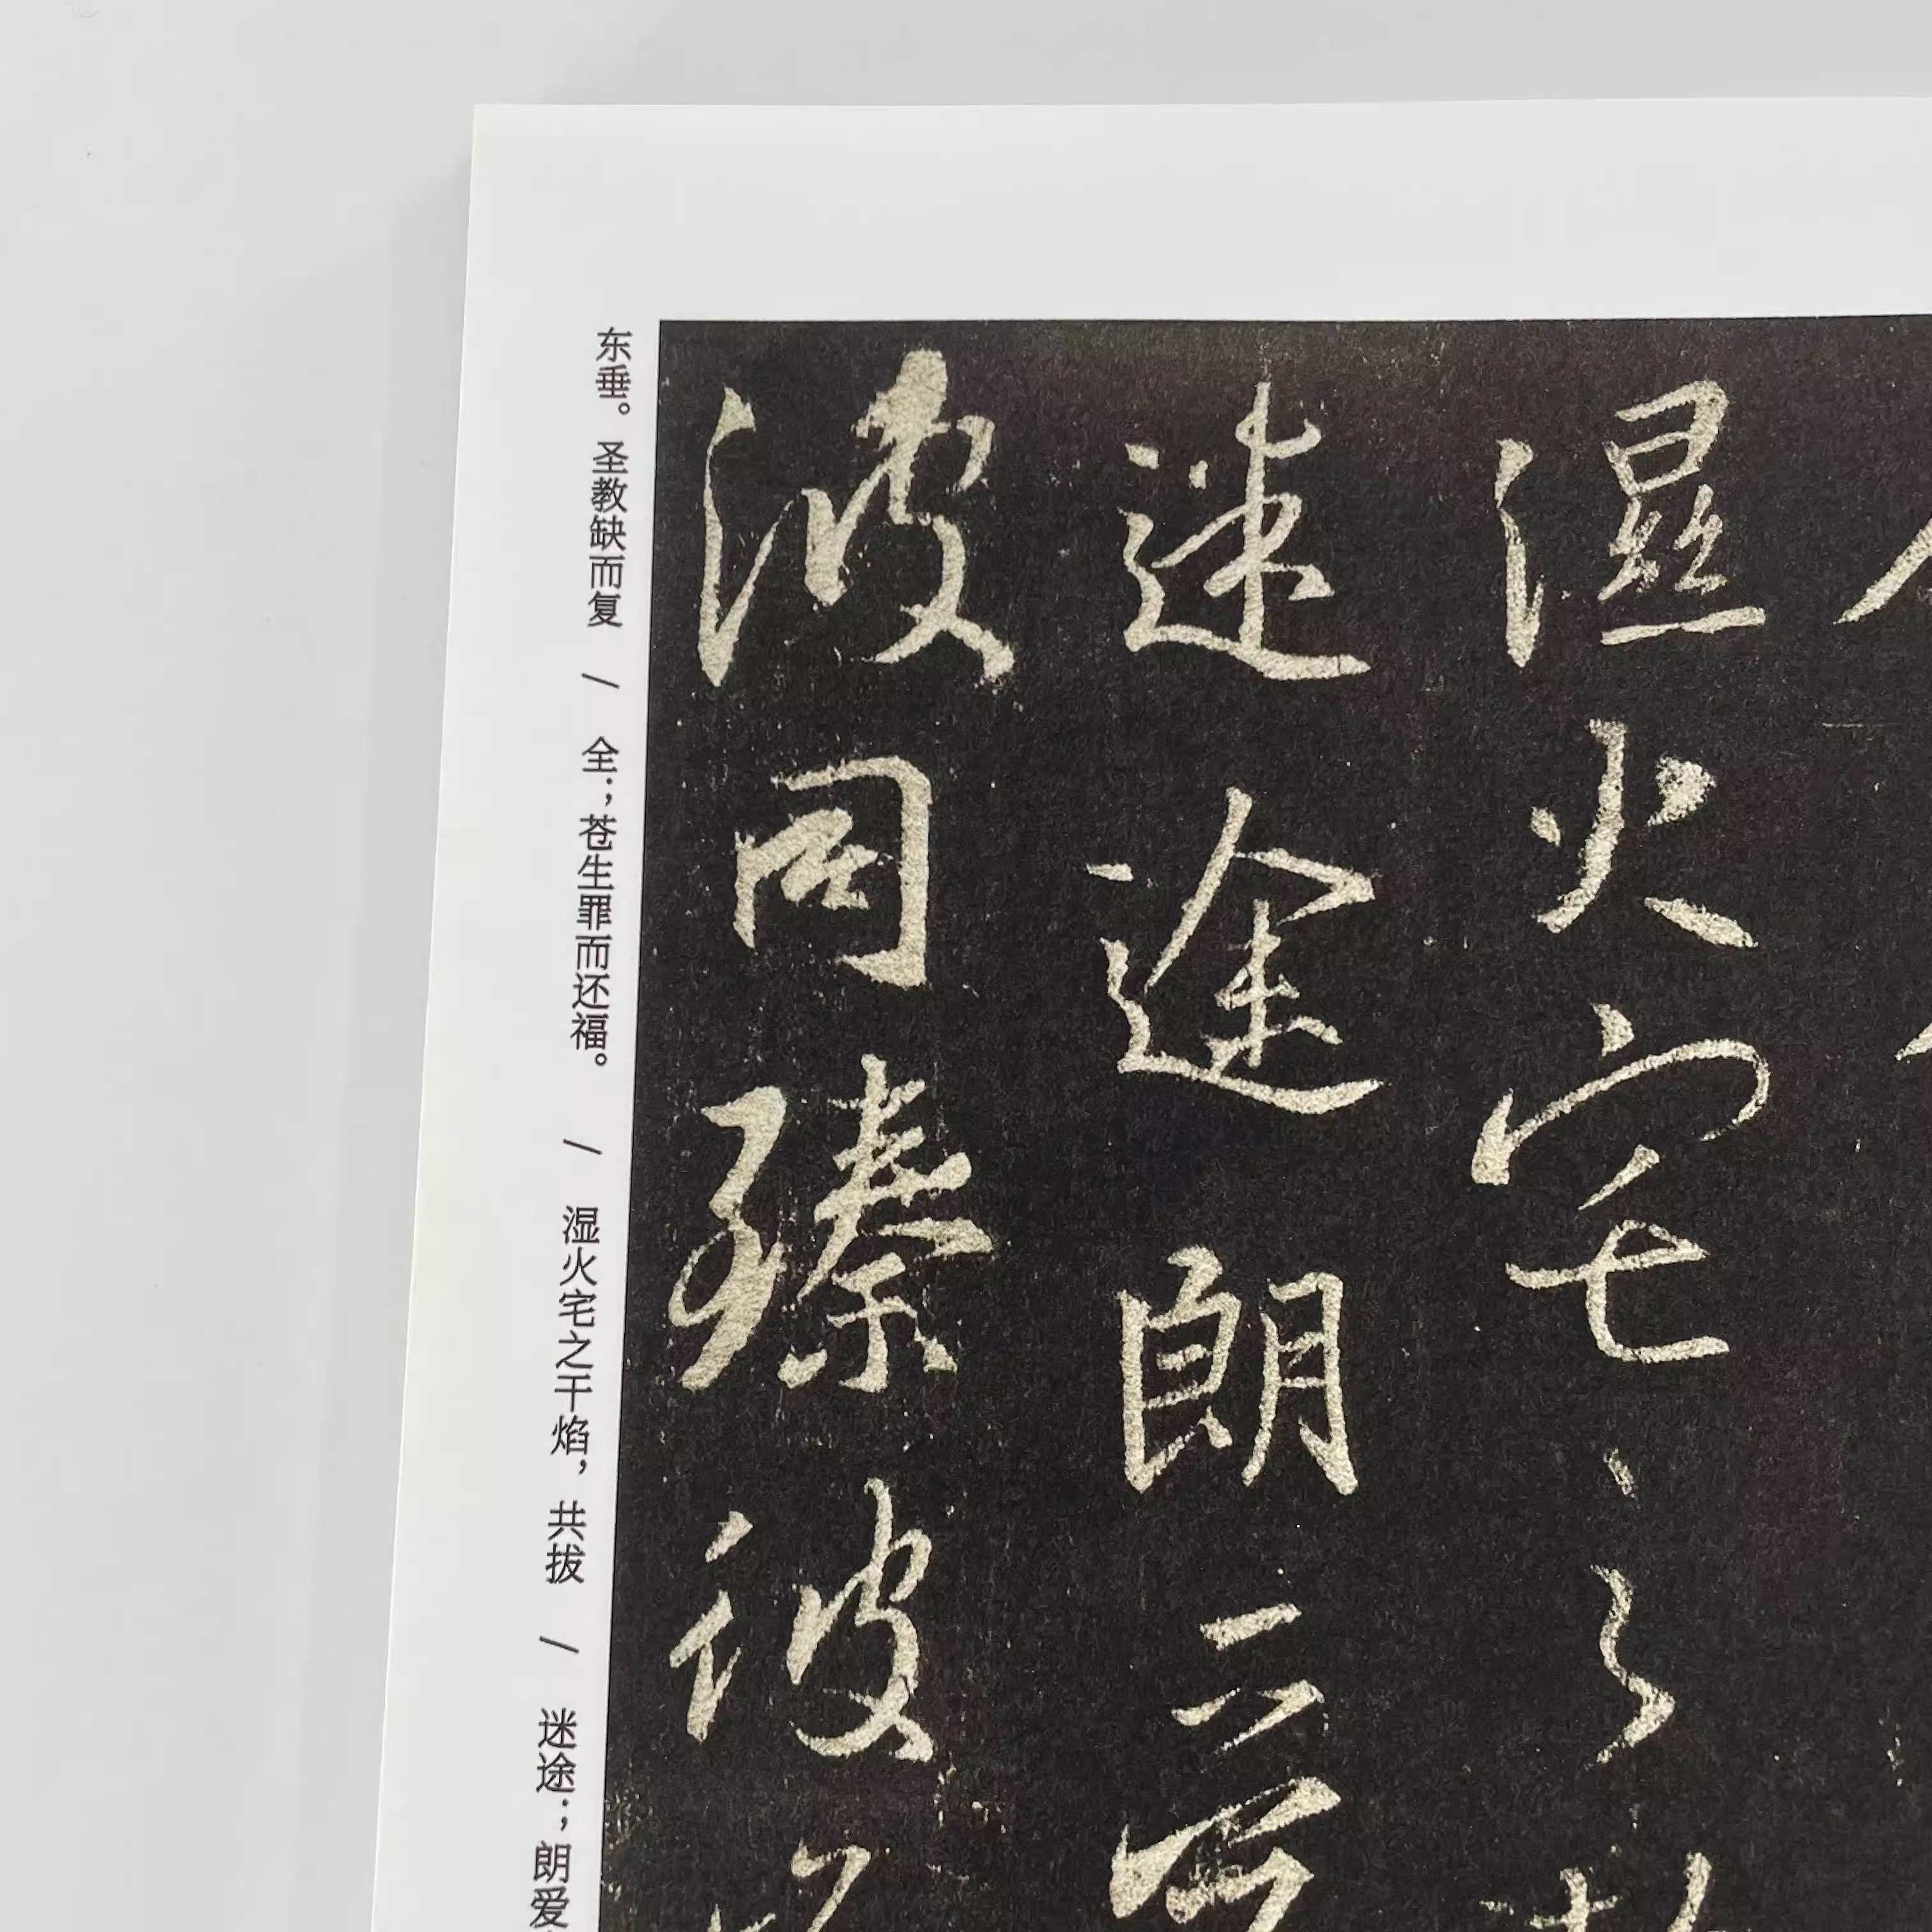 濕火宅之
迷途朗
波同臻彼
东垂。圣教缺而复 / 全；苍生罪而还福。 / 湿火宅之干焰，共拔 / 迷途；朗爱